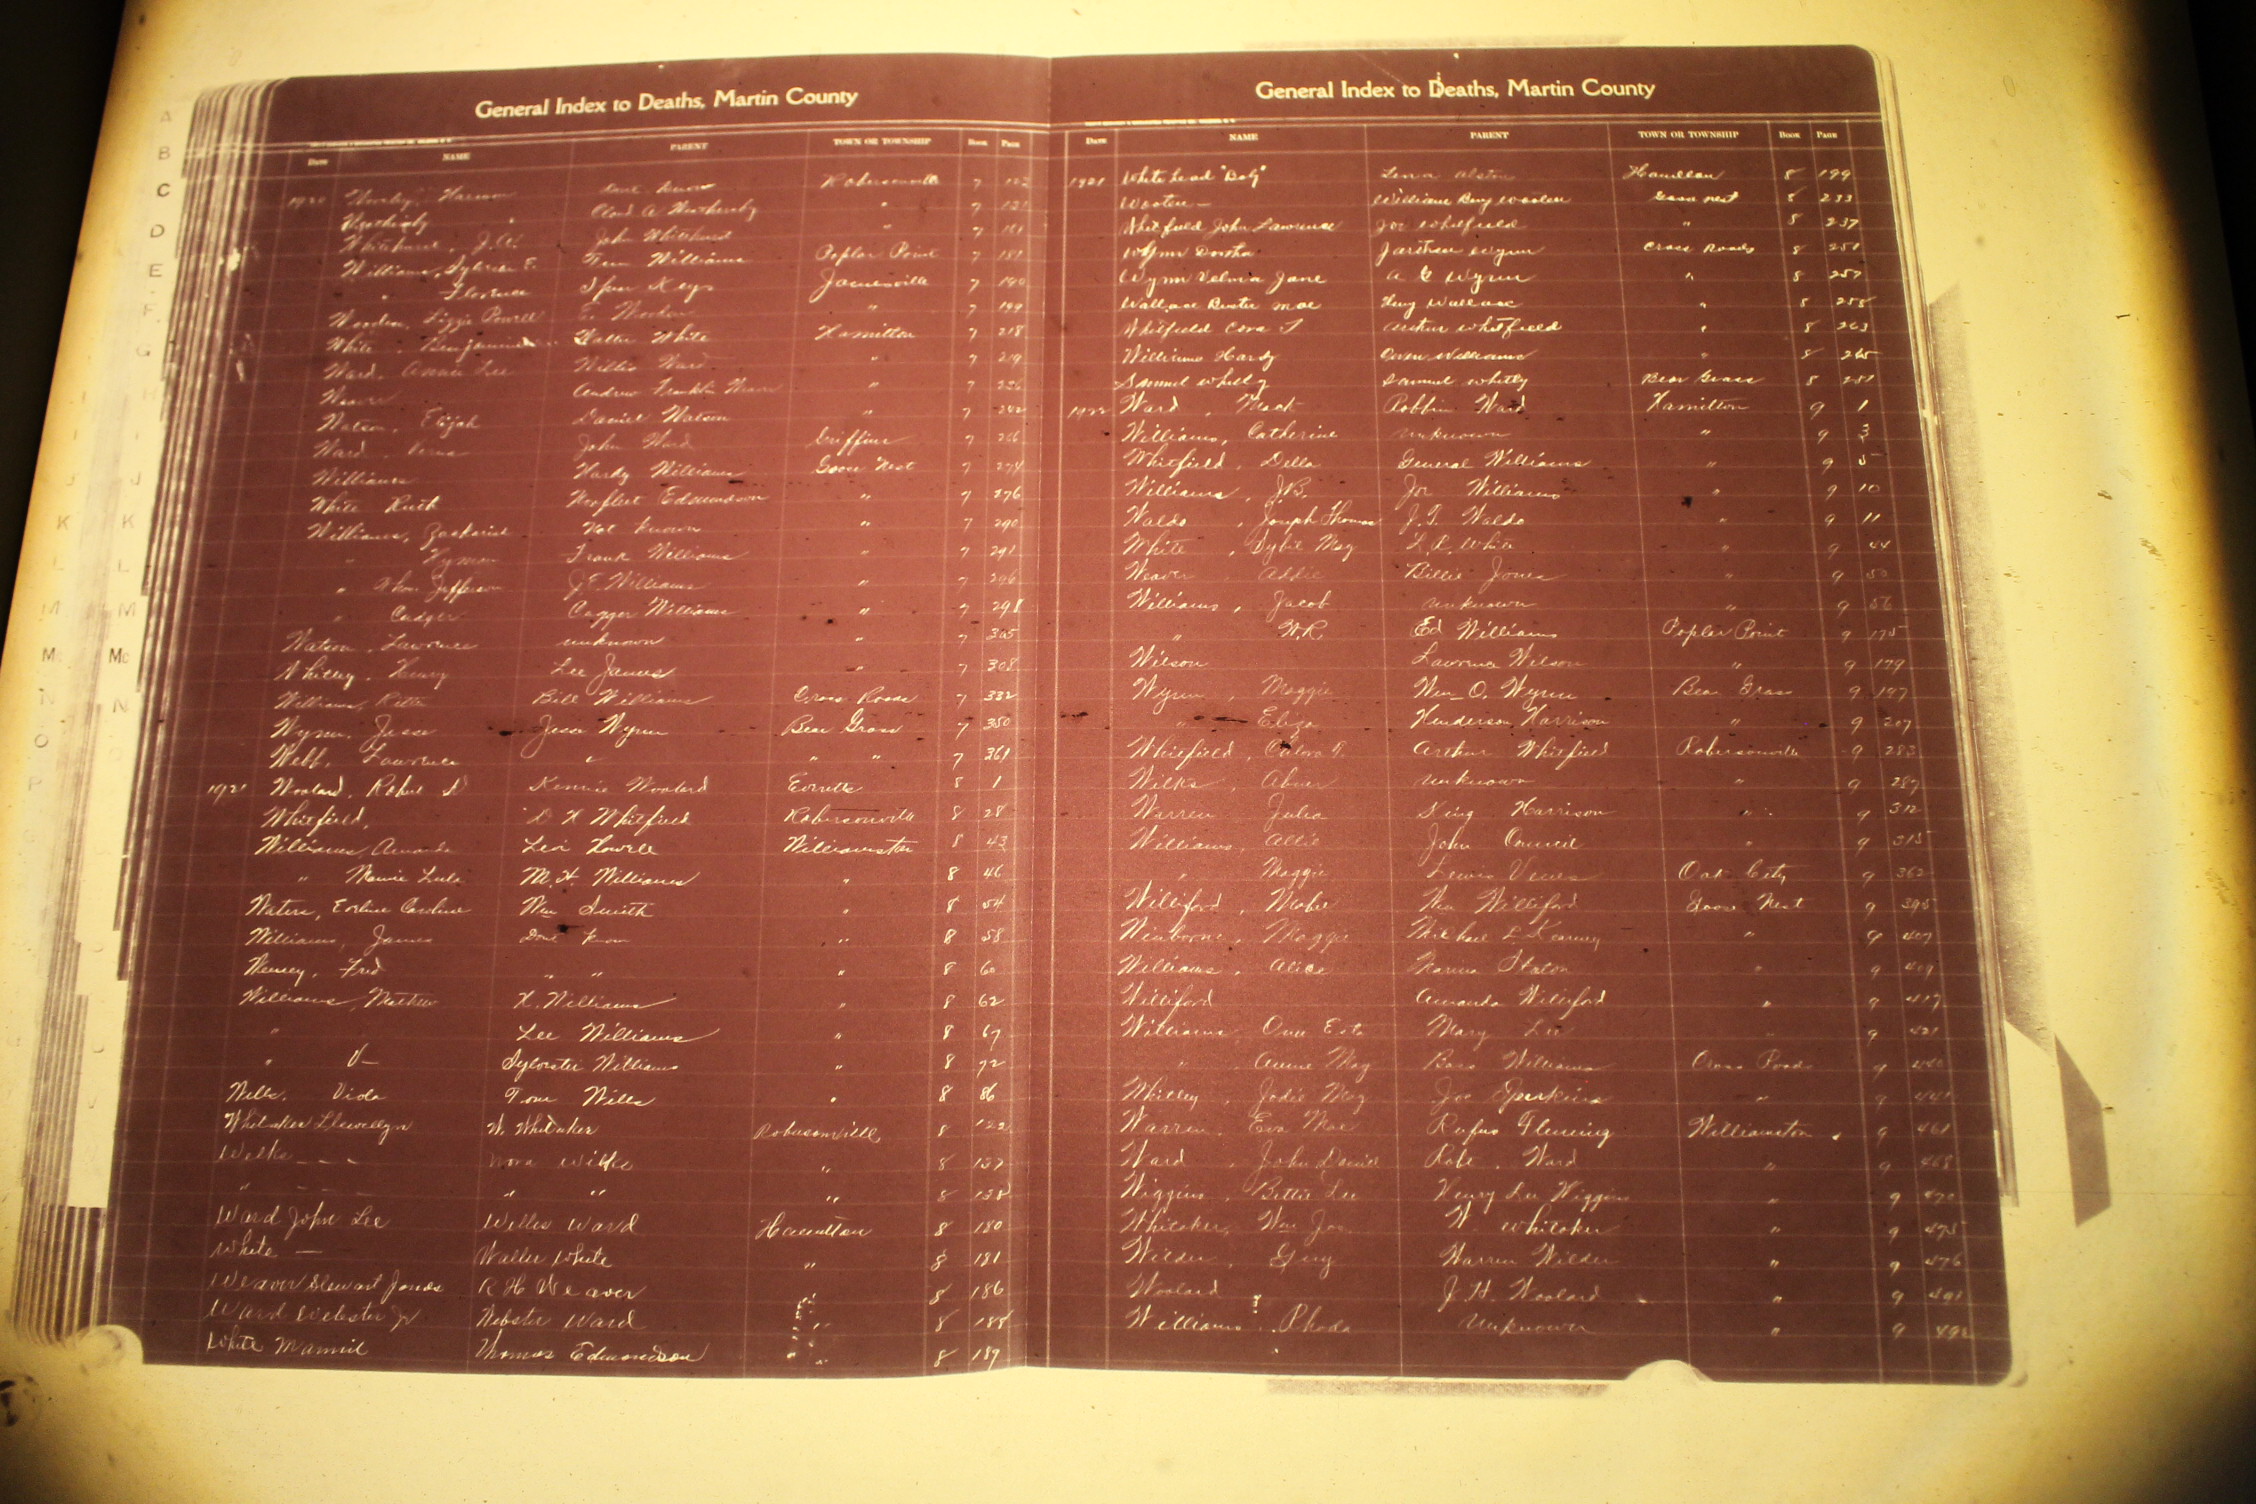 General Index to Deaths, Martin County
Date NAME PARENT TOWN OR TOWNSHIP Book Page
1920 Robersonville 7
" 7
Whitehurst, J. W. John Whitehurst " 7 161
Williams, Sylvester E. Tom Williams Poplar Point 7 181
" Florence Jamesville 7 190
Lizzie Powell " 7 199
White, Benjamin Walter White Hamilton 7 218
Ward, Annie Lee Willis Ward " 7 219
Andrew Franklin " 7 236
Watson, Elijah Daniel Watson " 7 242
Ward, Verna John Ward Griffins 7 266
Williams Hardy Williams Goose Nest 7 274
White Ruth Norfleet Edmundson " 7 276
Williams, Zachariah Not known " 7 290
" Hyman Frank Williams " 7 291
" Thos. Jefferson J. E. Williams " 7 296
" Cadger Cagger Williams " 7 298
Watson, Lawrence unknown " 7 305
Whitley, Henry Lee James " 7 308
Williams, Ritta Bill Williams Cross Roads 7 332
Wynn, Jesse Jesse Wynn Bear Grass 7 350
Webb, Lawrence " " " 7 361
1921 Woolard, Robert D Kennie Woolard Everetts 8 1
Whitfield, D H Whitfield Robersonville 8 28
Williams, Amanda Levi Howell Williamston 8 43
" Mamie Lula M. H. Williams " 8 46
Waters, Eveline Caroline Wm Smith " 8 54
Williams, James Dont Know " 8 58
Fred " " " 8 60
Williams, Mathew H. Williams " 8 62
" Lee Williams " 8 67
" V— Sylvester Williams " 8 72
Wells, Viola Tom Wells " 8 86
Whitaker Llewellyn W. Whitaker Robersonville 8 122
Wilks - - - Nora Wilks " 8 137
" - - - " " " 8 138
Ward John Lee Willis Ward Hamilton 8 180
White — Walter White " 8 181
Weaver Stewart Jones R H Weaver " 8 186
Ward Webster Jr Webster Ward " 8 188
White Mannie Thomas Edmondson " 8 189
General Index to Deaths, Martin County
Date NAME PARENT TOWN OR TOWNSHIP Book Page
1921 Whitehead "Baby" Lena Alston Hamilton 8 199
Wooten — William Wooten Goose nest 8 233
Whitfield John Lawrence Joe Whitfield " 8 237
Wynn Wynn Cross Roads 8 251
Wynn Velma Jane A E Wynn " 8 257
Wallace Mae Wallace " 8 258
Whitfield Cora T Arthur Whitfield " 8 263
Williams Hardy Owen Williams " 8 265
Samuel Whitley Samuel Whitley Bear Grass 8 281
1922 Ward, Mack Robbin Ward Hamilton 9 1
Williams, Catherine unknown " 9 3
Whitfield, Della General Williams " 9 5
Williams, J.B. Joe Williams " 9 10
Waldo, Joseph Thomas J. T. Waldo " 9 11
White, Sybil May L. R. White " 9 44
Weaver, Addie Billie Jones " 9 50
Williams, Jacob unknown " 9 56
" W.R. Ed Williams Poplar Point 9 175
Wilson Lawrence Wilson " 9 179
Wynn, Maggie Wm O. Wynn Bear Grass 9 197
" Eliza Henderson Harrison " 9 207
Whitfield, Arthur Whitfield Robersonville 9 283
Wilks, Abner unknown " 9 287
Warren Julia King Harrison " 9 312
Williams, Allie John Council " 9 315
" Maggie Lewis Vines Oak City 9 362
Williford, Mabel Wm Williford Goose Nest 9 395
Winborne, Maggie Michael L Kearney " 9 407
Williams, Alice Staton " 9 409
Williford Amanda Williford " 9 417
Williams, Mary Lee " 9 421
" Annie May Bass Williams Cross Roads 9 440
Whitley, Jodie May Joe Jenkins " 9 441
Warren, Eva Mae Rufus Fleming Williamston 9 461
Ward, John Daniel Robt. Ward " 9 468
Wiggins, Bettie Lee Henry Lee Wiggins " 9 470
Whitaker, Wm Joe W. Whitaker " 9 475
Wilder, Guy Warren Wilder " 9 476
Woolard J. H. Woolard " 9 491
Williams, Rhoda Unknown " 9 492
A
B
C
D
E
F
G
H
I
J
K
L
M
Mc
N
O
P